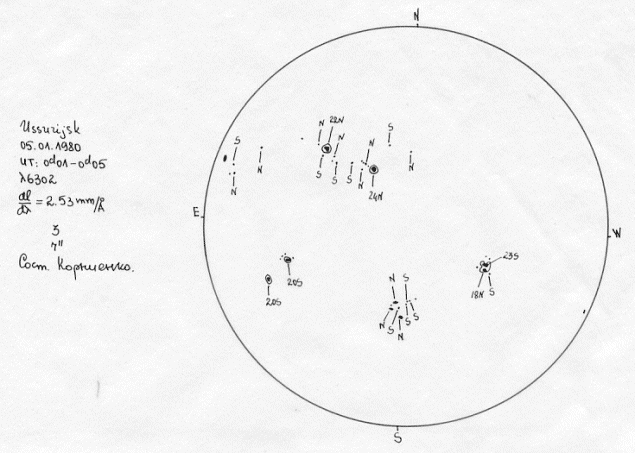 Ussurijsk
05.01.1980
UT: 0ᵈ01-0ᵈ05
λ6302
dl/dλ = 2.53 mm/Å
3
7"
Сост.
N
E
W
S
N 22N
N
S
N
S
N
S
S
S
N
N
24N
N
20S
20S
23S
18N S
N S
N S S S
N